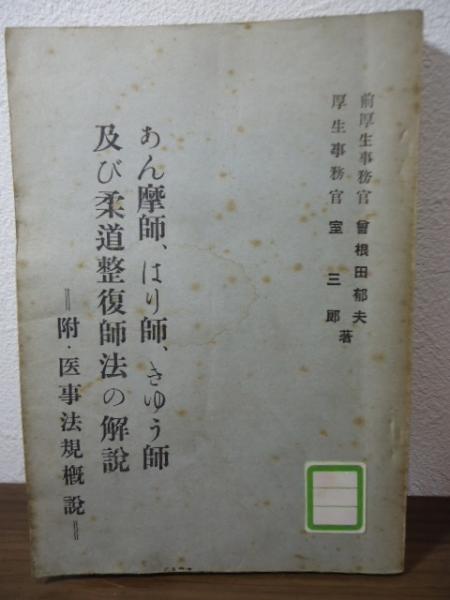 前厚生事務官 曾根田郁夫
厚生事務官 室三郎
著
あん摩師、はり師、きゆう師
及び柔道整復師法の解説
＝附・医事法規概説＝